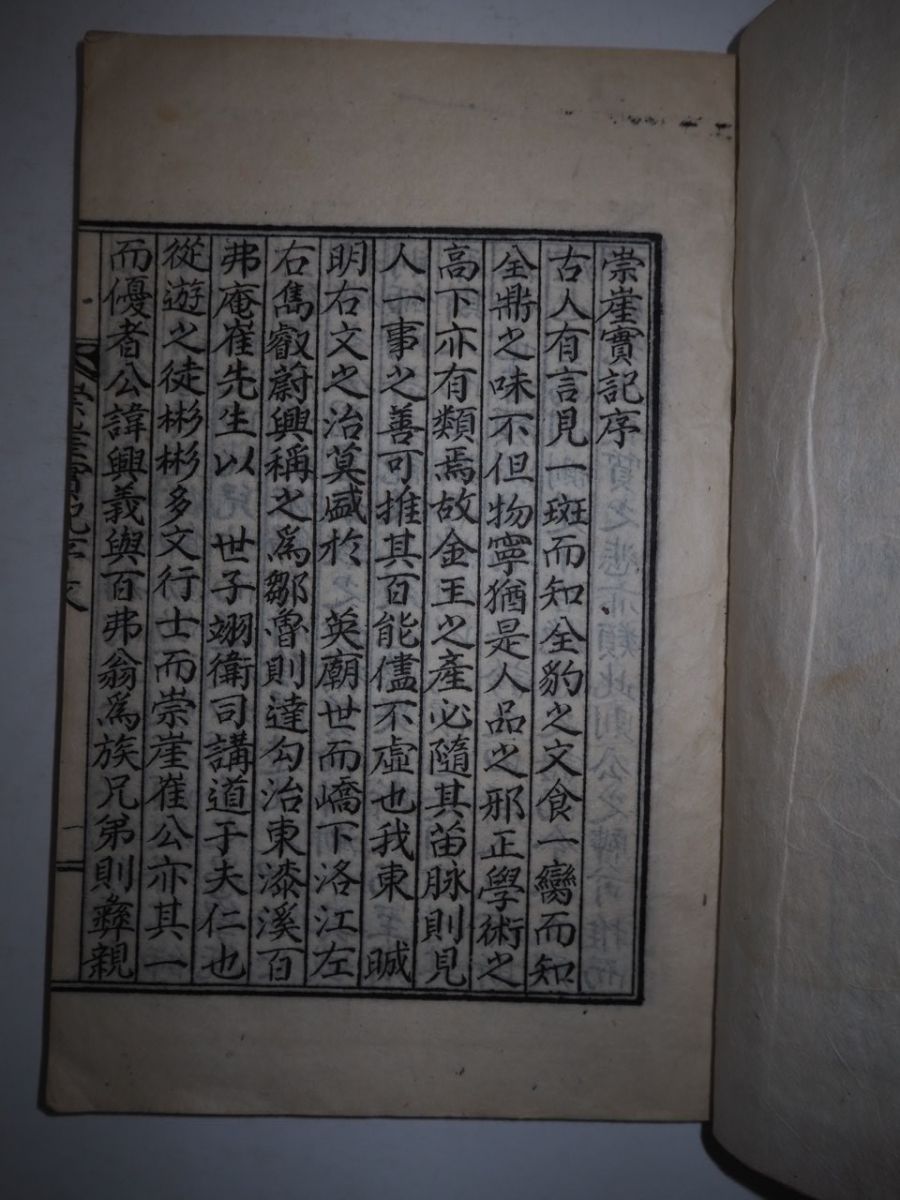 崇崖實記序
古人有言見一斑而知全豹之文食一臠而知
全鼎之味不但物寧猶是人品之邪正學術之
高下亦有類焉故金玉之產必隨其苗脉則見
人一事之善可推其百能儘不虛也我東 
明右文之治莫盛於 英廟世而嶠下洛江左
右雋叡蔚興稱之爲鄒魯則達勾治東漆溪百
弗庵崔先生以 世子翊衛司講道于夫仁也
從遊之徒彬彬多文行士而崇崖崔公亦其一
而優者公諱興義與百弗翁爲族兄弟則彝親
崇崖實記序